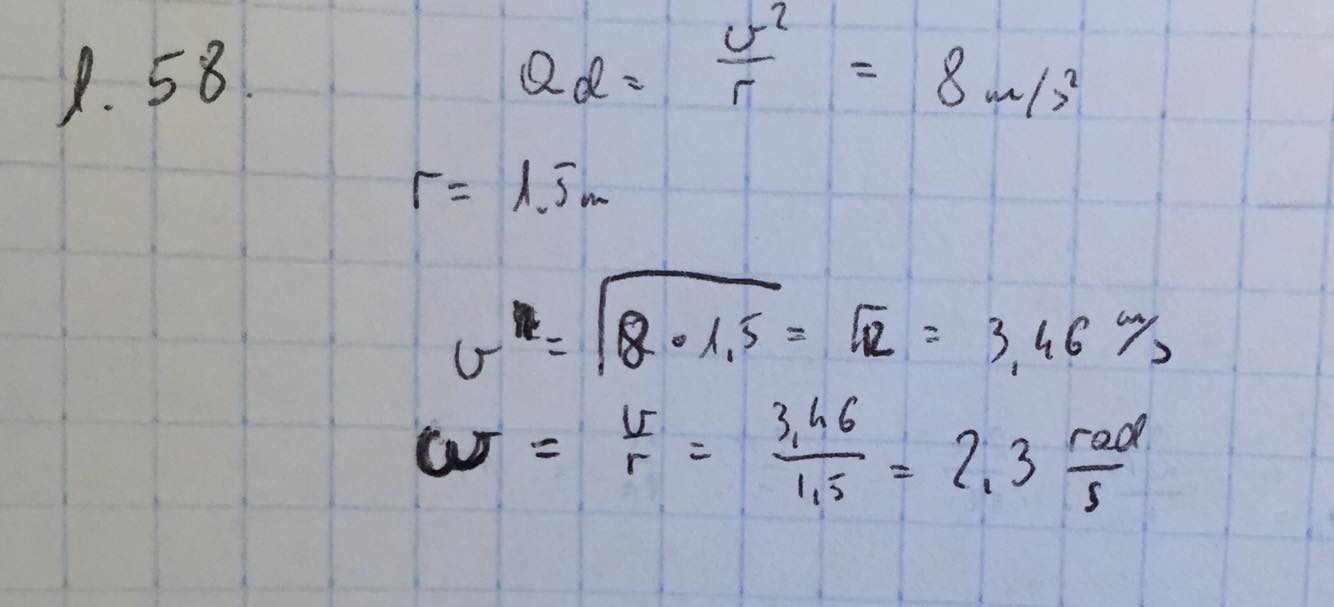 1.58. ad = v²/r = 8 m/s²
r = 1.5m
v = √8·1,5 = √12 = 3,46 m/s
ω = v/r = 3,46/1,5 = 2,3 rad/s